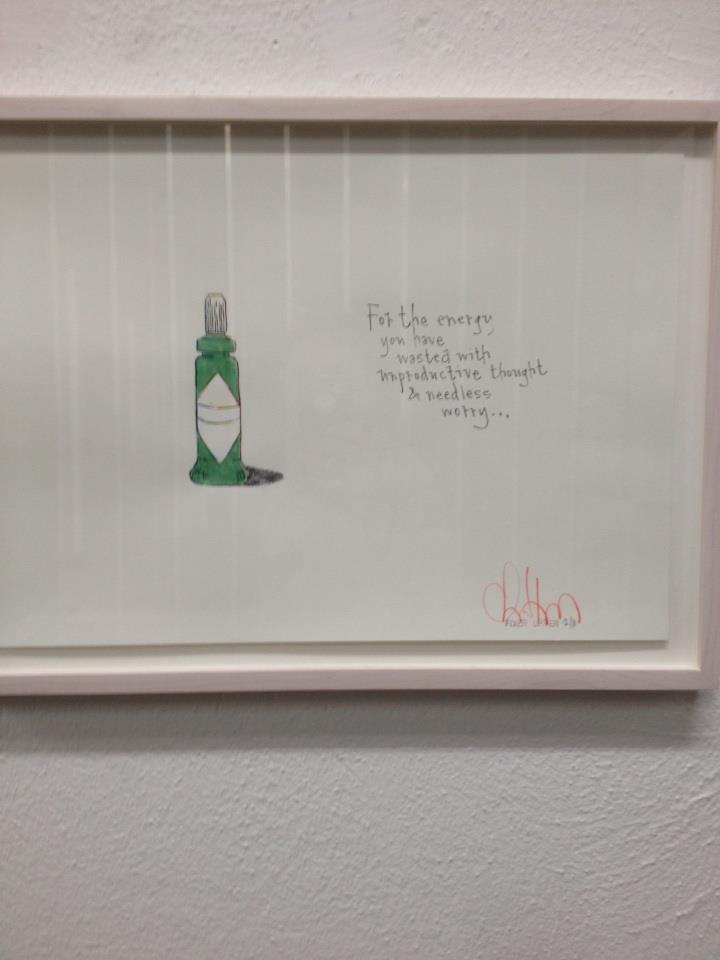 For the energy
you have
wasted with
unproductive thought
& needless
worry...